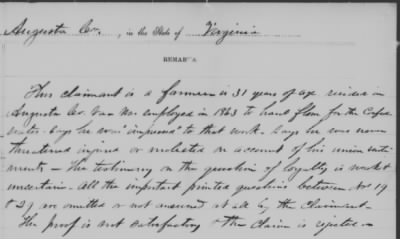 Augusta Co., in the State of Virginia
REMARKS.
This claimant is a farmer is 31 years of age resides in
Augusta Co. Va was employed in 1863 to haul flour for the Confed
erates. Says he was "impressed" to that work. Says he was never
threatened injured or molested on account of his union senti
ments – His testimony on the question of loyalty is weak &
uncertain. All the important printed questions between Nos 19
& 29 are omitted or not answered at all by the Claimant.
The proof is not satisfactory & the Claim is rejected –